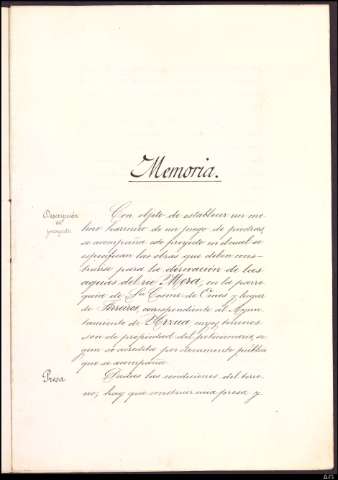 Memoria.
Descripción
del
proyecto
Con objeto de establecer un mo-
lino harinero de un juego de piedras,
se acompaña este proyecto en el cual se
especifican las obras que deben cons-
truirse para la derivación de las
aguas del rio Mera, en la parro-
quia de Sn Cosme de Oines y lugar
de Ferreiros, correspondiente al Ayun-
tamiento de Arzua cuyos terrenos
son de propiedad del peticionario, se-
gun se acredita por documento público
que se acompaña.
Presa
Dadas las condiciones del terre-
no, hay que construir una presa y